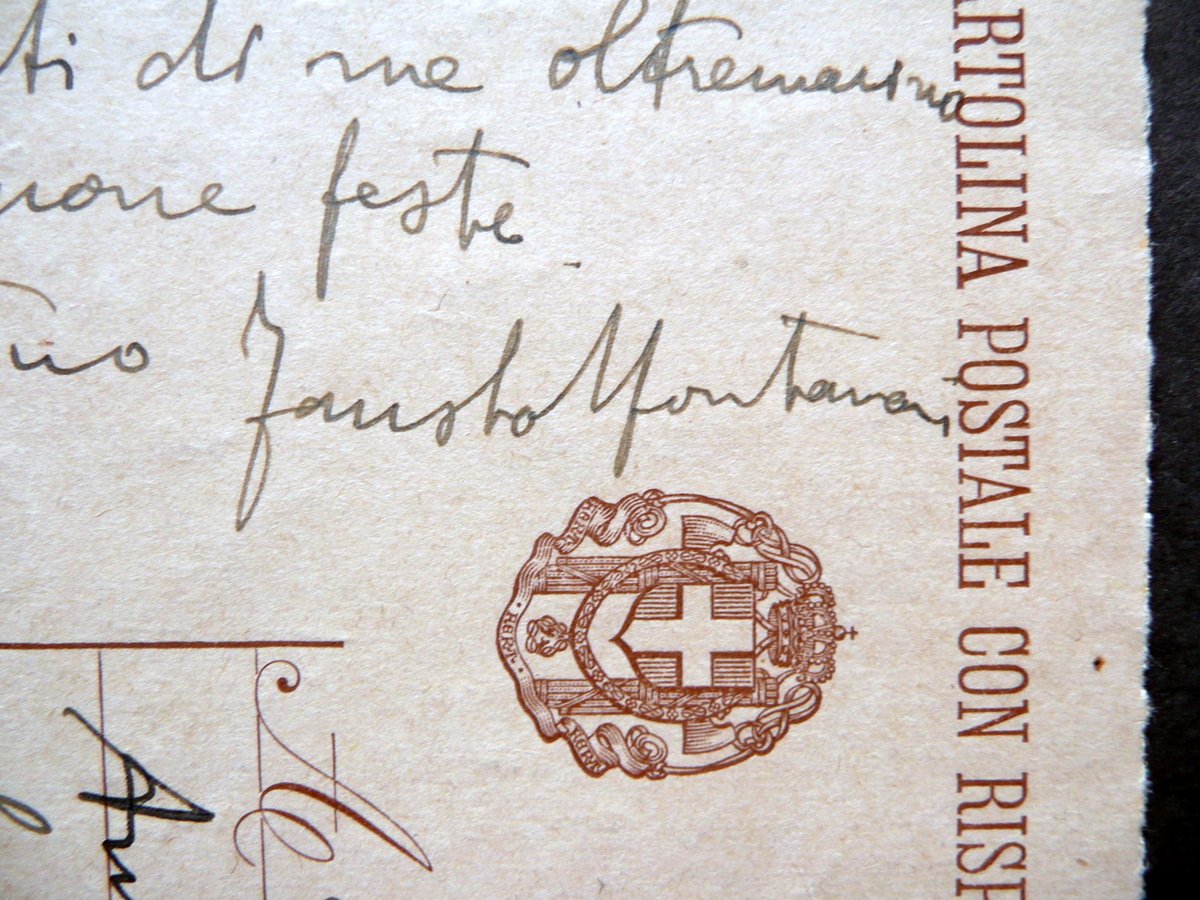 ti di me oltremarino
uone feste
Fausto Montanari
ARTOLINA POSTALE CON RISP
FERT
FERT
FERT